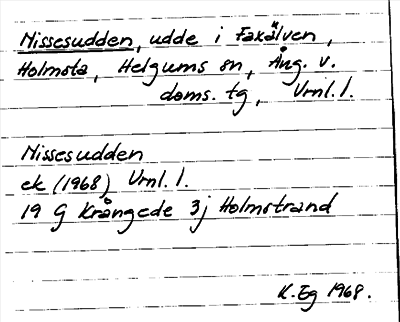 Nissesudden, udde i Faxälven,
Holmsta, Helgums sn, Ång. v.
doms. tg, Vrnl. l.
Nissesudden
ek (1968) Vrnl. l.
19 G Krångede 3j Holmstrand
K. Eg 1968.